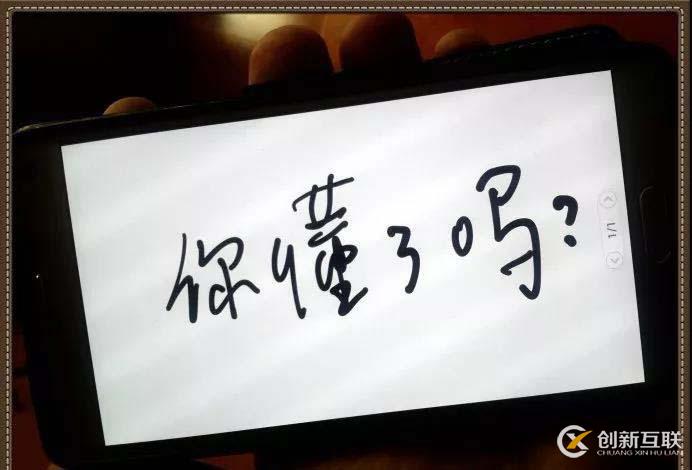 你懂了吗?
1/1
创新互联
CHUANG XIN HU LIAN